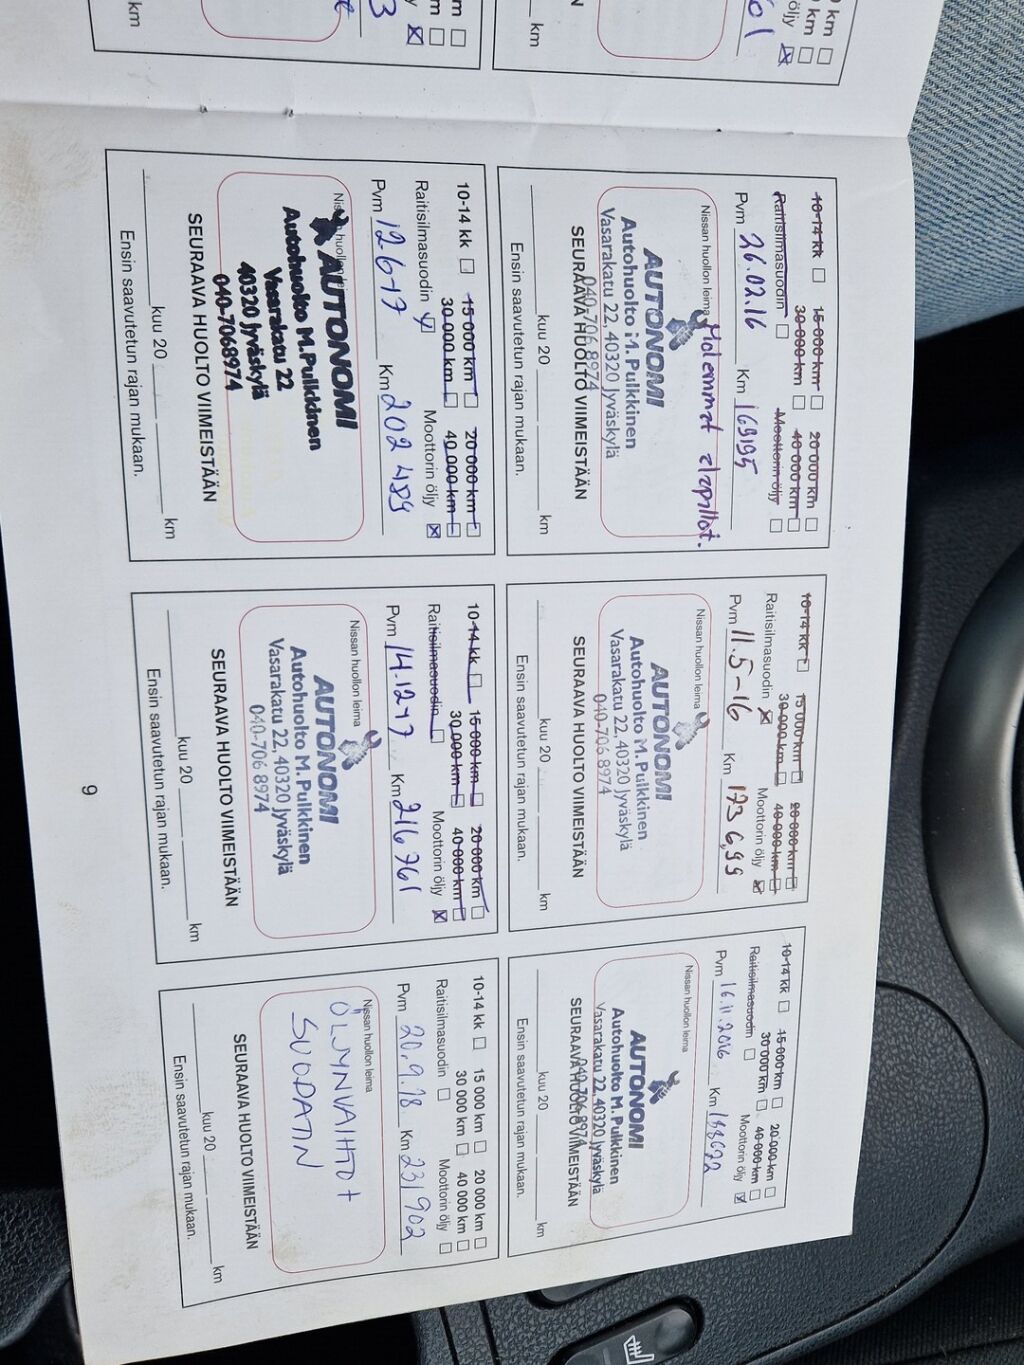 km
km
3
km
01
km
km
öljy
10-14 kk 15 000 km 20 000 km
Raitisilmasuodin 30 000 km 40 000 km
Moottorin öljy
Pvm 26.02.16 Km 169195
Nissan huollon leima
Molemmat alapallot.
AUTONOMI
Autohuolto M.Pulkkinen
Vasarakatu 22, 40320 Jyväskylä
040-706 8974
SEURAAVA HUOLTO VIIMEISTÄÄN
kuu 20 km
Ensin saavutetun rajan mukaan.
10-14 kk 15 000 km 20 000 km
Raitisilmasuodin 30 000 km 40 000 km
Moottorin öljy
Pvm 11.5-16 Km 173699
Nissan huollon leima
AUTONOMI
Autohuolto M.Pulkkinen
Vasarakatu 22, 40320 Jyväskylä
040-706 8974
SEURAAVA HUOLTO VIIMEISTÄÄN
kuu 20 km
Ensin saavutetun rajan mukaan.
10-14 kk 15 000 km 20 000 km
Raitisilmasuodin 30 000 km 40 000 km
Moottorin öljy
Pvm 16.11.2016 Km 188622
Nissan huollon leima
AUTONOMI
Autohuolto M.Pulkkinen
Vasarakatu 22, 40320 Jyväskylä
040-706 8974
SEURAAVA HUOLTO VIIMEISTÄÄN
kuu 20 km
Ensin saavutetun rajan mukaan.
10-14 kk 15 000 km 20 000 km
Raitisilmasuodin 30 000 km 40 000 km
Moottorin öljy
Pvm 12-6-17 Km 202 489
Nissan huollon leima
AUTONOMI
Autohuolto M.Pulkkinen
Vasarakatu 22
40320 Jyväskylä
040-7068974
SEURAAVA HUOLTO VIIMEISTÄÄN
kuu 20 km
Ensin saavutetun rajan mukaan.
10-14 kk 15 000 km 20 000 km
Raitisilmasuodin 30 000 km 40 000 km
Moottorin öljy
Pvm 14.12-17 Km 216761
Nissan huollon leima
AUTONOMI
Autohuolto M.Pulkkinen
Vasarakatu 22, 40320 Jyväskylä
040-706 8974
SEURAAVA HUOLTO VIIMEISTÄÄN
kuu 20 km
Ensin saavutetun rajan mukaan.
10-14 kk 15 000 km 20 000 km
Raitisilmasuodin 30 000 km 40 000 km
Moottorin öljy
Pvm 20.9.18 Km 231902
Nissan huollon leima
ÖLJYNVAIHTO +
SUODATIN
SEURAAVA HUOLTO VIIMEISTÄÄN
kuu 20 km
Ensin saavutetun rajan mukaan.
9